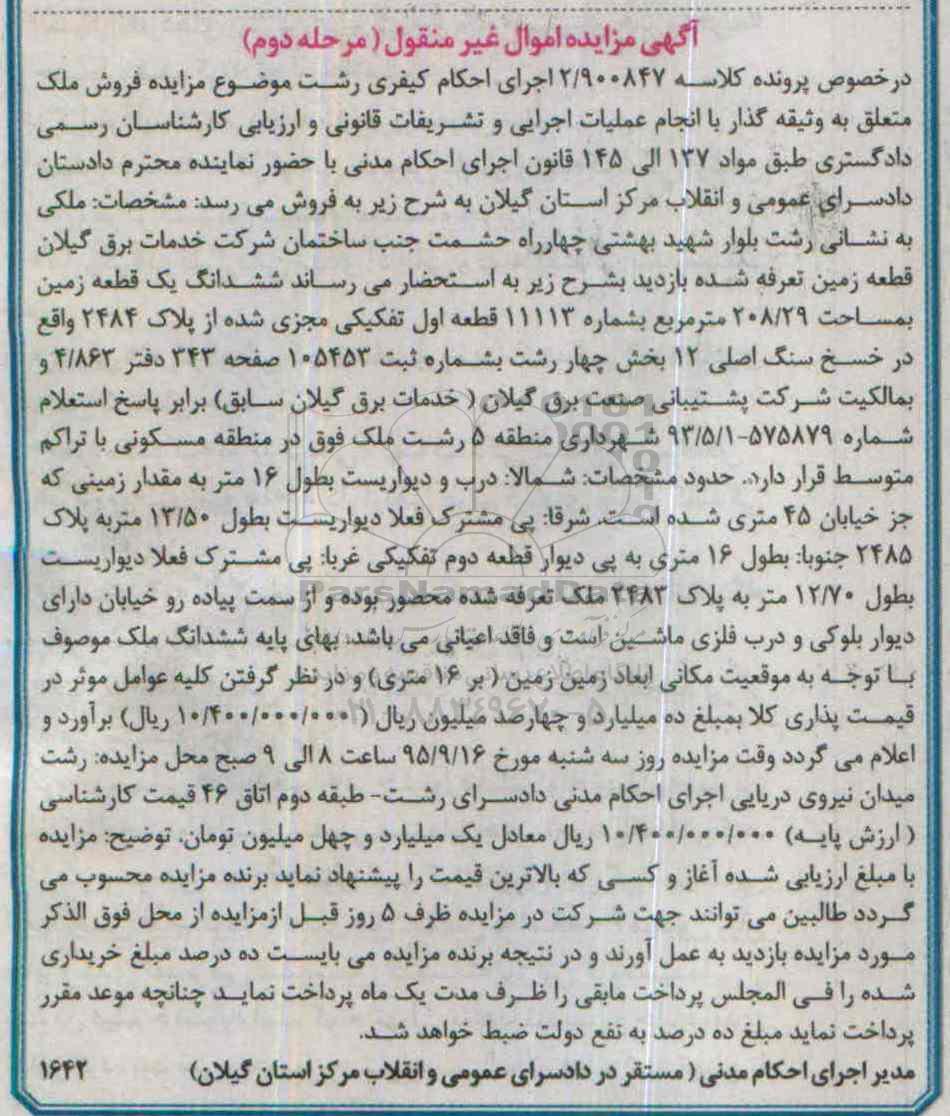 آگهی مزایده اموال غیر منقول (مرحله دوم)
درخصوص پرونده کلاسه ۲/۹۰۰۸۴۷ اجرای احکام کیفری رشت موضوع مزایده فروش ملک
متعلق به وثیقه گذار با انجام عملیات اجرایی و تشریفات قانونی و ارزیابی کارشناسان رسمی
دادگستری طبق مواد ۱۳۷ الی ۱۴۵ قانون اجرای احکام مدنی با حضور نماینده محترم دادستان
دادسرای عمومی و انقلاب مرکز استان گیلان به شرح زیر به فروش می رسد: مشخصات: ملکی
به نشانی رشت بلوار شهید بهشتی چهارراه حشمت جنب ساختمان شرکت خدمات برق گیلان
قطعه زمین تعرفه شده بازدید بشرح زیر به استحضار می رساند ششدانگ یک قطعه زمین
بمساحت ۲۰۸/۲۹ مترمربع بشماره ۱۱۱۱۳ قطعه اول تفکیکی مجزی شده از پلاک ۲۴۸۴ واقع
در خسخ سنگ اصلی ۱۲ بخش چهار رشت بشماره ثبت ۱۰۵۴۵۳ صفحه ۳۴۳ دفتر ۴/۸۶۳ و
بمالکیت شرکت پشتیبانی صنعت برق گیلان (خدمات برق گیلان سابق) برابر پاسخ استعلام
شماره ۵۷۵۸۷۹-۹۳/۵/۱ شهرداری منطقه ۵ رشت ملک فوق در منطقه مسکونی با تراکم
متوسط قرار دارد. حدود مشخصات: شمالا: درب و دیواریست بطول ۱۶ متر به مقدار زمینی که
جز خیابان ۴۵ متری شده است. شرقا: پی مشترک فعلا دیواریست بطول ۱۳/۵۰ متربه پلاک
۲۴۸۵ جنوبا: بطول ۱۶ متری به پی دیوار قطعه دوم تفکیکی غربا: پی مشترک فعلا دیواریست
بطول ۱۲/۷۰ متر به پلاک ۲۴۸۳ ملک تعرفه شده محصور بوده و از سمت پیاده رو خیابان دارای
دیوار بلوکی و درب فلزی ماشین است و فاقد اعیانی می باشد، بهای پایه ششدانگ ملک موصوف
با توجه به موقعیت مکانی ابعاد زمین زمین (بر ۱۶ متری) و در نظر گرفتن کلیه عوامل موثر در
قیمت پذاری کلا بمبلغ ده میلیارد و چهارصد میلیون ریال (۱۰/۴۰۰/۰۰۰/۰۰۰ ریال) برآورد و
اعلام می گردد وقت مزایده روز سه شنبه مورخ ۹۵/۹/۱۶ ساعت ۸ الی ۹ صبح محل مزایده: رشت
میدان نیروی دریایی اجرای احکام مدنی دادسرای رشت- طبقه دوم اتاق ۴۶ قیمت کارشناسی
(ارزش پایه) ۱۰/۴۰۰/۰۰۰/۰۰۰ ریال معادل یک میلیارد و چهل میلیون تومان. توضیح: مزایده
با مبلغ ارزیابی شده آغاز و کسی که بالاترین قیمت را پیشنهاد نماید برنده مزایده محسوب می
گردد طالبین می توانند جهت شرکت در مزایده ظرف ۵ روز قبل ازمزایده از محل فوق الذکر
مورد مزایده بازدید به عمل آورند و در نتیجه برنده مزایده می بایست ده درصد مبلغ خریداری
شده را فی المجلس پرداخت مابقی را ظرف مدت یک ماه پرداخت نماید چنانچه موعد مقرر
پرداخت نماید مبلغ ده درصد به نفع دولت ضبط خواهد شد.
مدیر اجرای احکام مدنی (مستقر در دادسرای عمومی و انقلاب مرکز استان گیلان) ۱۶۴۲
ParsNamadData